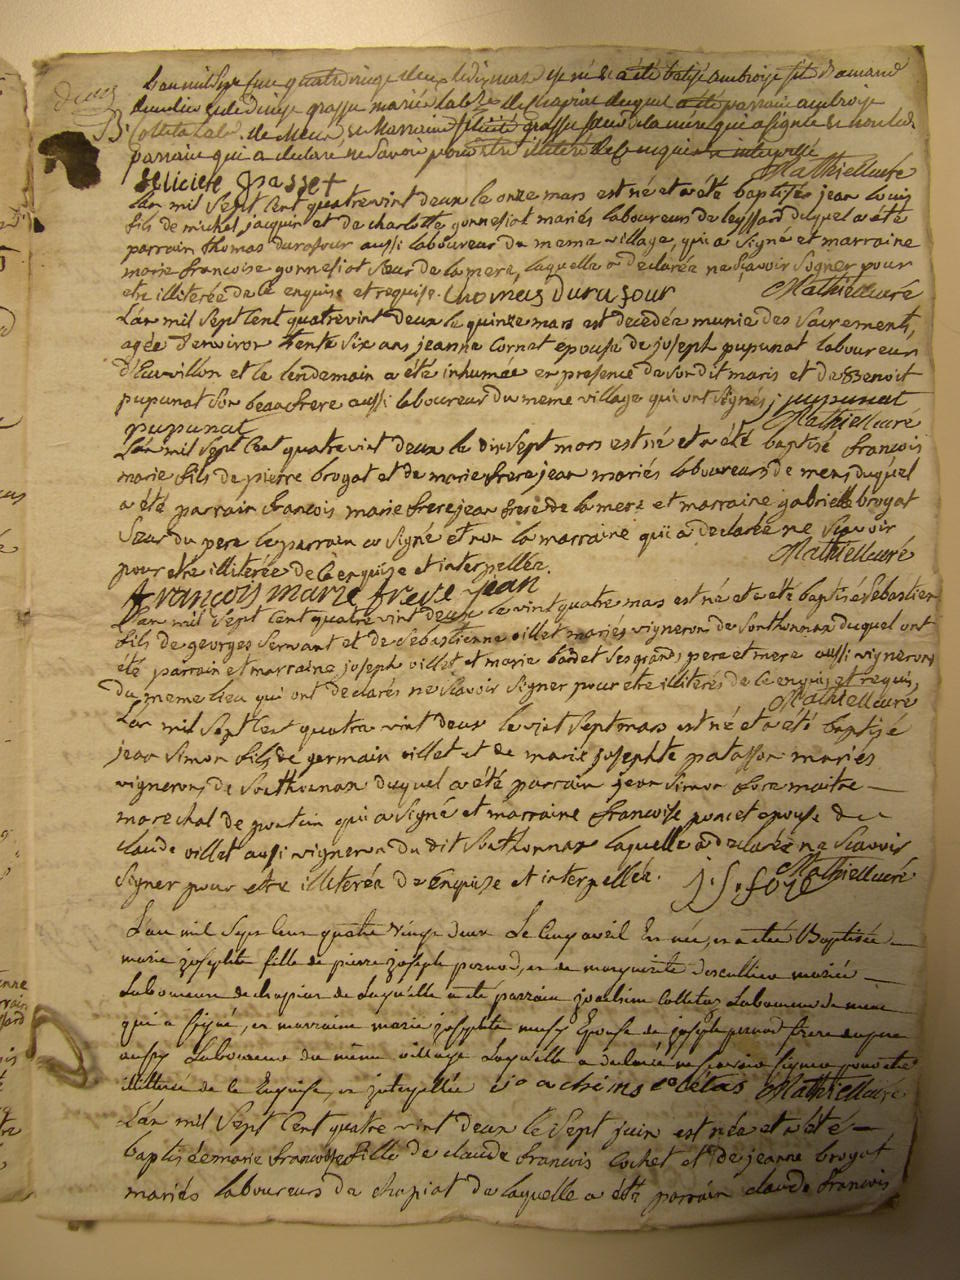 L'an mil sept cent quatre vingt deux le dix mars est né et a été batisé ambroise fils d'amand
et de Denise grasset mariés lab. de chapiat duquel a été parrain ambroise
Colleta lab. de Mens et Marraine felicité grasset sœur de la mère qui a signé et non le
parrain qui a declaré ne Savoir pour etre illiteré de ce enquis et interpellé Mathieu curé
feliciete Grasset
L'an mil Sept Cent quatrevint deux le onze mars est né et a été baptisés jean Louis
fils de michel jacquin et de charlotte gonnefiot mariés laboureurs de leyssard duquel a été
parrain thomas durafour aussi laboureur du meme village, qui a signé et marraine
marie francoise gonnefiot sœur de la mere, laquelle a declarée ne Scavoir Signer pour
etre illiterée de ce enquise et requise. thomas durafour Mathieu curé
L'an mil Sept Cent quatrevint deux le quinze mars est decedée munie des Sacrements,
agée d'environ trente Six ans jeanne Cornat epouse de joseph pupunat laboureur
d'Escuvillon et le lendemain a été inhumée en presence de son dit maris et de Benoit
pupunat Son beaufrere aussi laboureur du meme village qui ont Signés j pupunat
pupunat Mathieu curé
L'an mil Sept Cent quatrevint deux le dixsept mars est né et a été baptisé francois
marie fils de pierre brogat et de marie frerejean mariés laboureurs de mens duquel
a été parrain francois marie frerejean frere de la mere et marraine gabrielle brogat
Sœur du pere le parrain a Signé et non la marraine qui a declarée ne Scavoir
pour etre illiterée de ce enquise et interpellée. Mathieu curé
françois marie frere jean
L'an mil Sept Cent quatrevint deux le vintquatre mars est né et a été baptisé Sebastien
fils de georges Servant et de Sebastienne villet mariés vignerons de Sonthonnax duquel ont
été parrain et marraine joseph villet et marie bondet ses grands pere et mere aussi vignerons
du meme lieu qui ont declarés ne Scavoir Signer pour etre illiterés de ce enquis et requis,
Mathieu curé
L'an mil Sept Cent quatre vint deux le vint Sept mars est né et a été baptisé
jean Simon fils de germain villet et de marie josephte patasson mariés
vignerons de Sonthonnax duquel a été parrain jean Simon fore maitre
marechal de poncin qui a Signé et marraine francoise poncet epouse de
claude villet aussi vigneron du dit Sonthonnax laquelle a declarée ne Scavoir
Signer pour etre illiterée de enquise et interpellée. j. S. foré Mathieu curé
L'an mil Sept Cent quatre vingt deux Le cinq avril Est née, et a eté Baptisée
marie josephte fille de pierre joseph pernod, et de marguerite mariés
Laboureurs de chapiat de Laquelle a été parrain joachim Colletas Laboureur de mens
qui a signé, et marraine marie josephte Epouse de joseph pernod frere
aussy Laboureur du même village Laquelle a declaré ne scavoir signer pour etre
illiterée de ce Enquise, et interpellée joachims coletas Mathieu curé
L'an mil Sept Cent quatre vint deux le Sept juin est née et a été
baptisée marie francoise fille de claude francois Cochet et de jeanne brogat
mariés laboureurs de chapiat de laquelle a été parrain claude francois